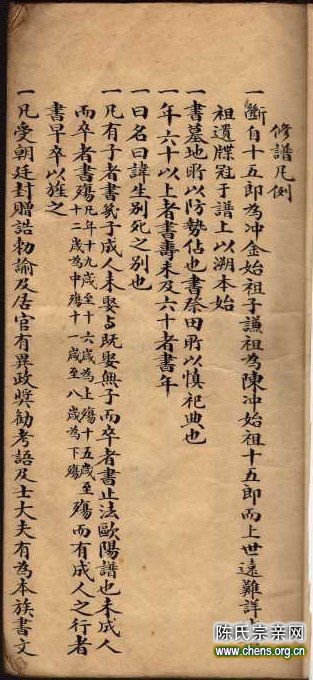 修譜凡例
一斷自十五郎為冲金始祖子謙祖為陳冲始祖十五郎而上世遠難詳
祖遺牒冠于譜上以溯本始
一書墓地所以防勢佔也書祭田所以慎祀典也
一年六十以上者書壽未及六十者書年
一曰名曰諱生別死之別也
一凡有子者書幾子成人未娶与既娶無子而卒者書止法歐陽譜也未成人
而卒者書殤凡年十九歲至十六歲為上殤十五歲至十二歲為中殤十一歲至八歲為下殤殤而有成人之行者
書早卒以旌之
一凡受朝廷封贈誥勅諭及居官有異政獎勸考語及士大夫有為本族書文
陳氏宗亲网
www.chens.org.cn